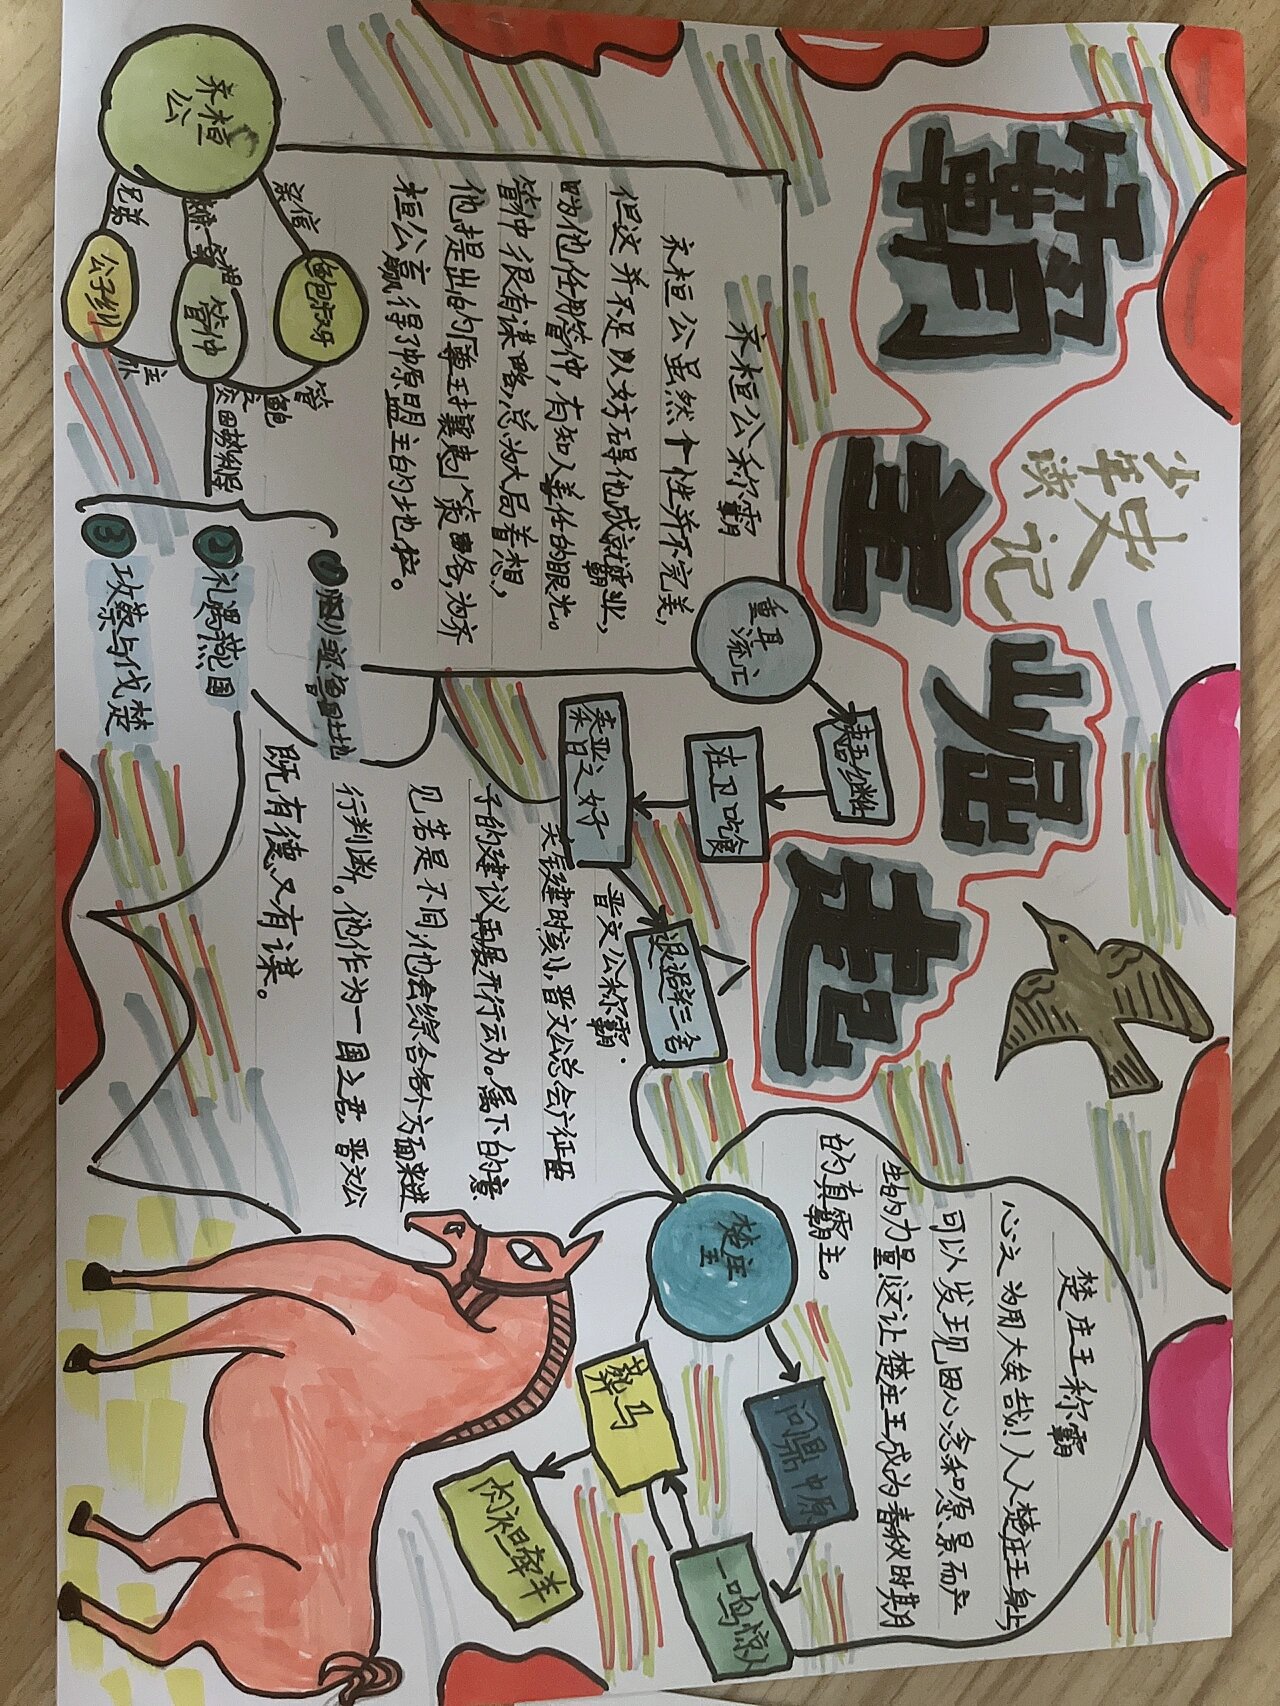 霸主崛起
少年读
史记
齐桓公
亲信
鲍叔牙
管仲
兄弟
公子纠
管鲍之交
①归还鲁国土地
②礼遇燕国
③攻蔡与伐楚
齐桓公称霸
齐桓公虽然个性并不完美，
但这并不足以妨碍他成就霸业，
因为他任用管仲，有知人善任的眼光。
管仲很有谋略，总为大局着想，
他提出的“尊王攘夷”策略，为齐
桓公赢得了中原盟主的地位。
重耳流亡
骊姬之难
过卫吃食
秦晋之好
退避三舍
晋文公称霸.
关键时刻，晋文公总会广征臣
子的建议再展开行动。属下的意
见若是不同，他会综合各个方面来进
行判断。他作为一国之君，晋文公
既有德又有谋。
楚庄王称霸
心之为用大矣哉！人人楚庄王身上，
可以发现因心念和愿景而产
生的力量，这让楚庄王成为春秋时期
的真霸主。
楚庄王
问鼎中原
一鸣惊人
葬马
肉袒牵羊